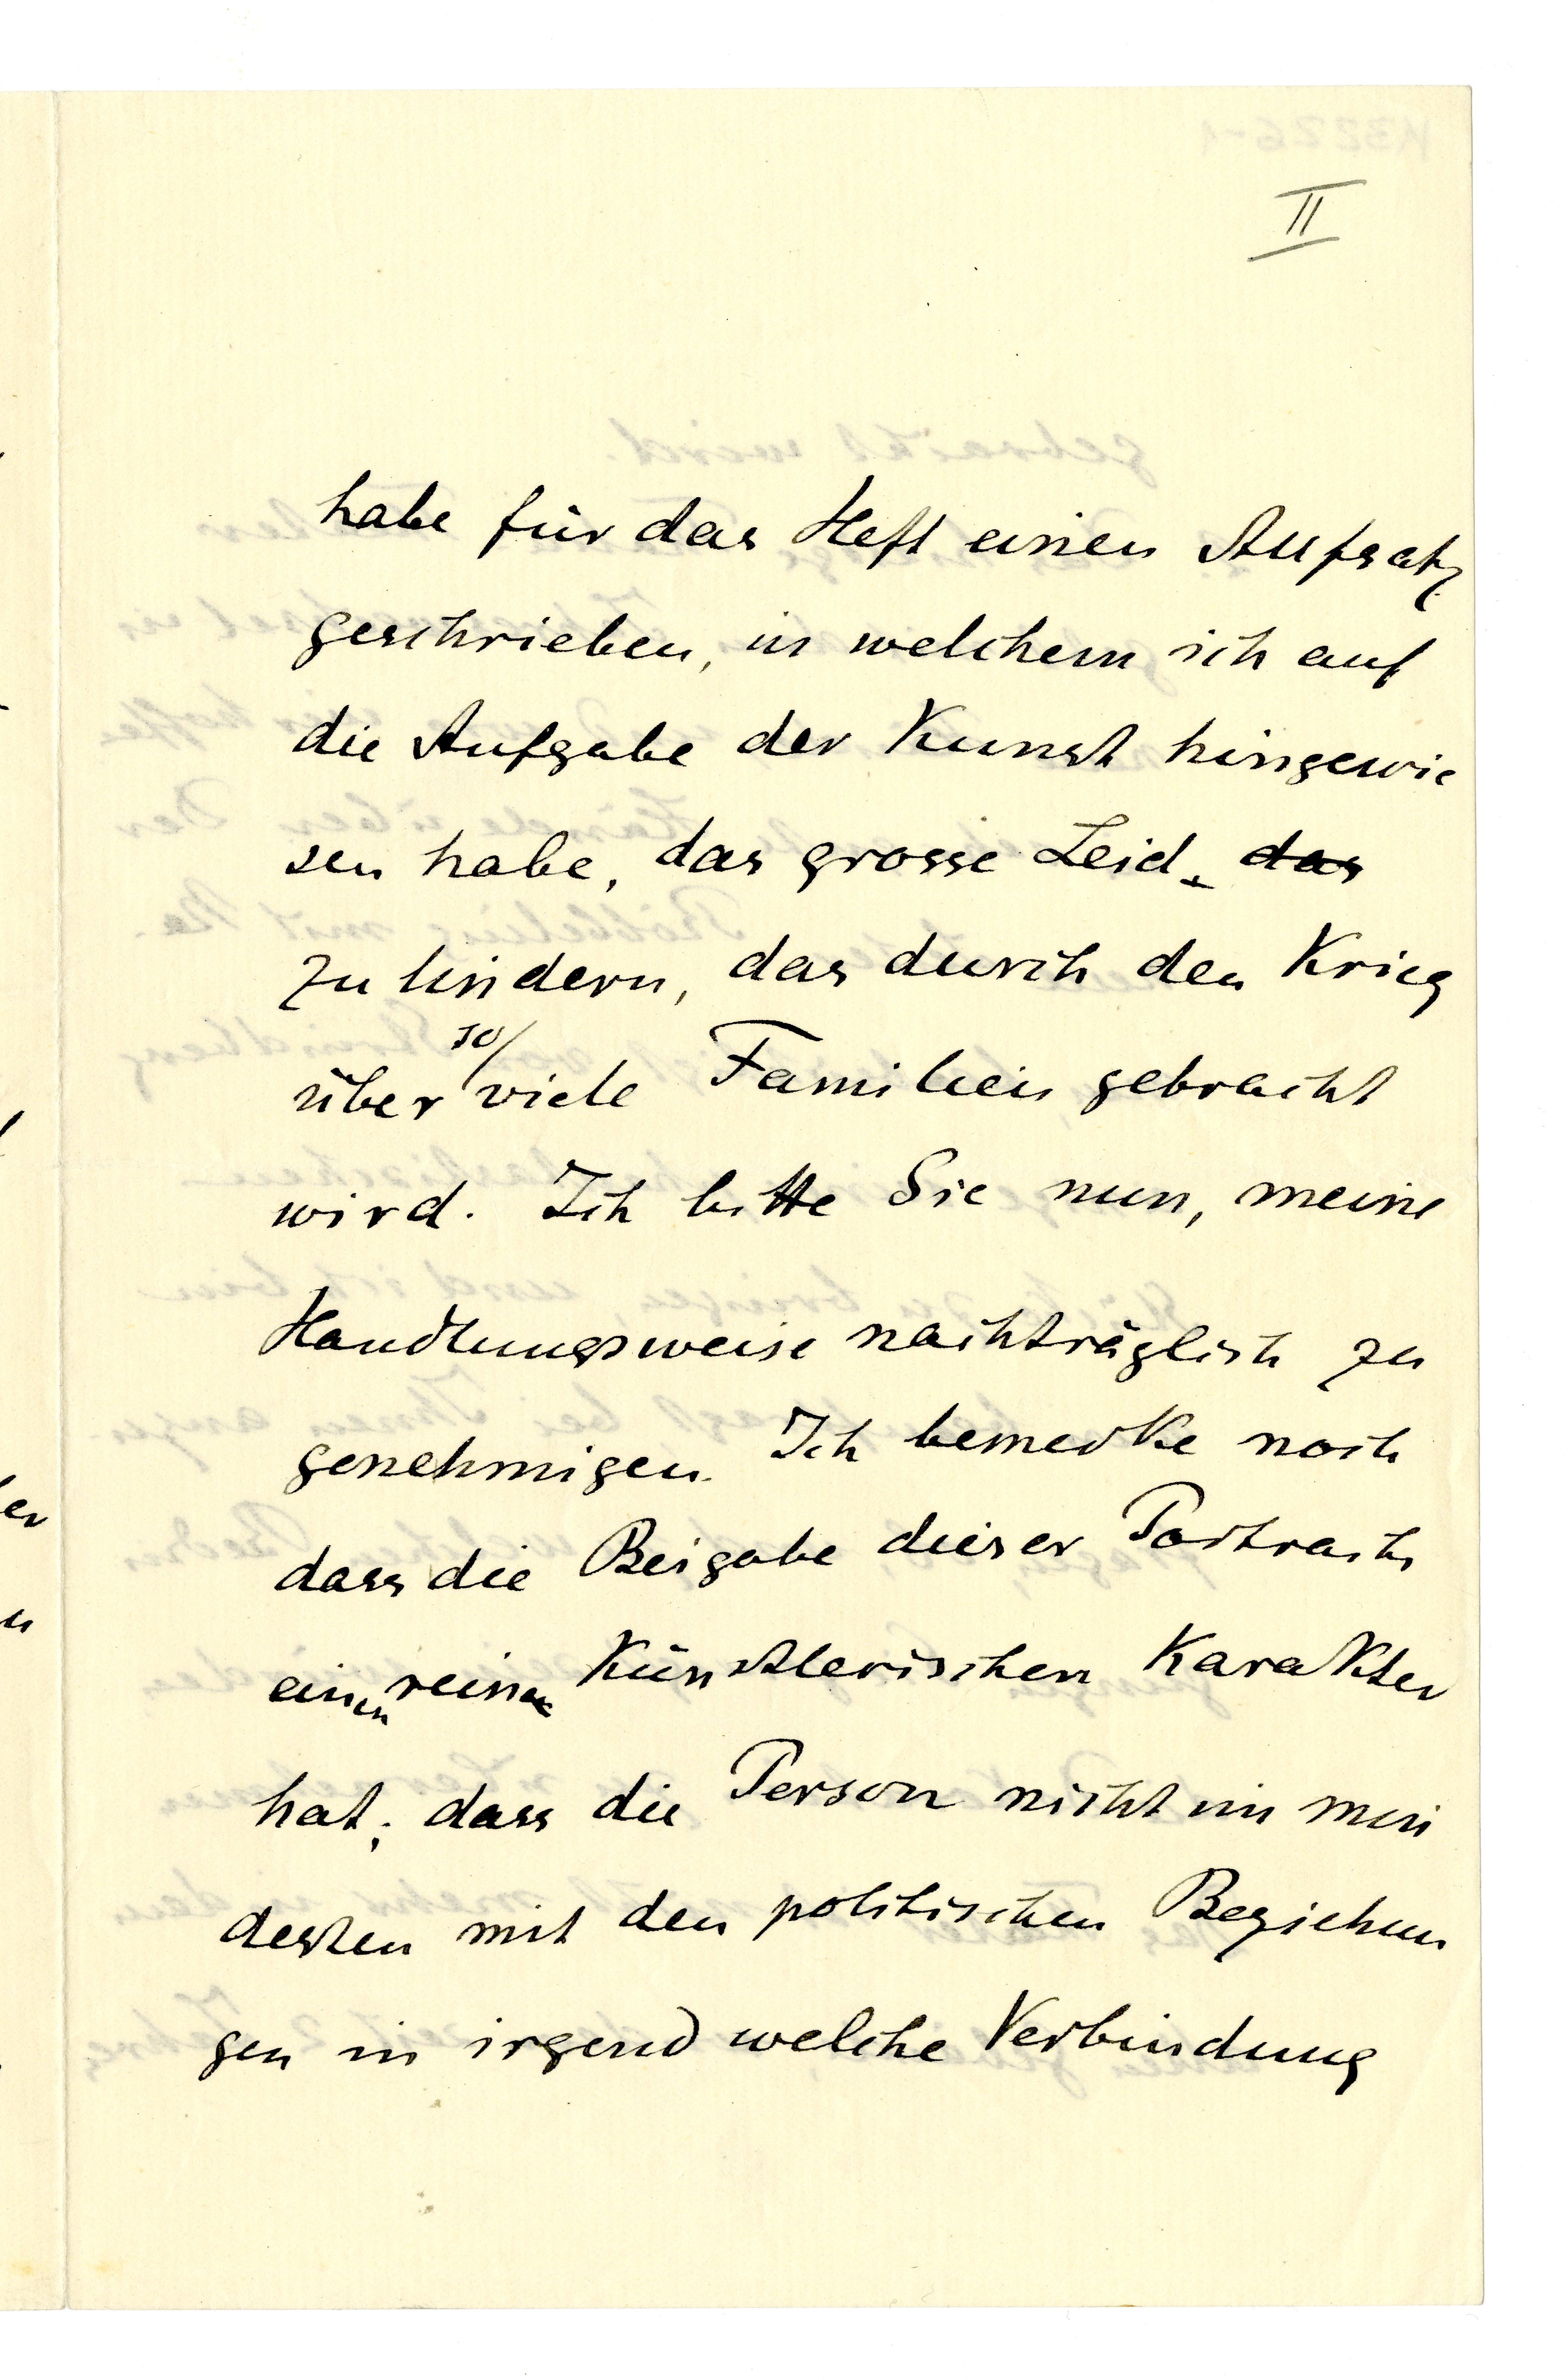 II
habe für das Heft einen Aufsatz
geschrieben, in welchem ich auf
die Aufgabe der Kunst hingewie
sen habe, das grosse Leid, das
zu lindern, das durch den Krieg
über so viele Familien gebracht
wird. Ich bitte Sie nun, meine
Handlungsweise nachträglich zu
genehmigen. Ich bemerke noch
dass die Beigabe dieser Portraits
einen rein künstlerischen Karakter
hat; dass die Person nicht im min
desten mit den politischen Beziehun
gen in irgend welche Verbindung